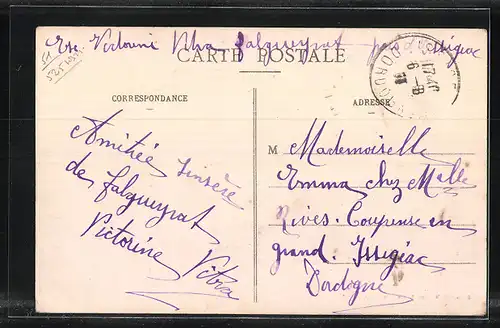 Exp Victorine Vitra Falgueyrat par Issigeac
CARTE POSTALE
CORRESPONDANCE
ADRESSE
Amitiée sinsère
de falgueyrat
Victorine Vitra
M Mademoiselle
Emma chez Malle
Rives. Coupeuse en
grand. Issigeac
Dordogne
17 40
6 - 8
DORDOGNE